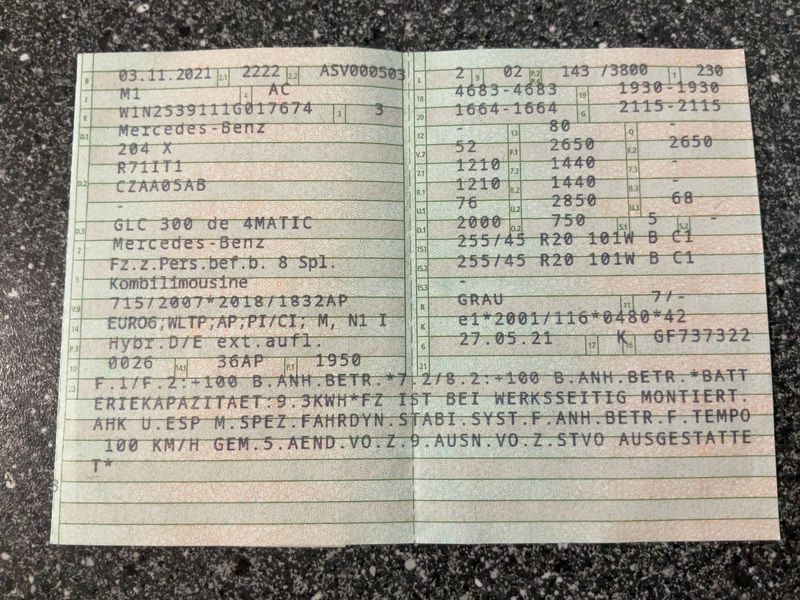 B 03.11.2021 2.1 2222 2.2 ASV000503
J M1 4 AC
E W1N2539111G017674 3 3
D.1 Mercedes-Benz
204 X
R71IT1
D.2 CZAA05AB
-
D.3 GLC 300 de 4MATIC
2 Mercedes-Benz
Fz.z.Pers.bef.b. 8 Spl.
5 Kombilimousine
V.9 715/2007*2018/1832AP
14 EURO6;WLTP;AP;PI/CI; M, N1 I
P.3 Hybr.D/E ext.aufl.
10 0026 14.1 36AP P.1 1950
L 2 9 02 P.2 P.4 143 /3800 T 230
18 4683-4683 19 1930-1930
20 1664-1664 G 2115-2115
12 - 13 80 Q -
V.7 52 F.1 2650 F.2 2650
7.1 1210 7.2 1440 7.3 -
8.1 1210 8.2 1440 8.3 -
U.1 76 U.2 2850 U.3 68
O.1 2000 O.2 750 S.1 5 S.2 -
15.1 255/45 R20 101W B C1
15.2 255/45 R20 101W B C1
15.3 -
R GRAU 11 7/-
K e1*2001/116*0480*42
6 27.05.21 17 K 16 GF737322
21
22 F.1/F.2:+100 B.ANH.BETR.*7.2/8.2:+100 B.ANH.BETR.*BATT
ERIEKAPAZITAET:9.3KWH*FZ IST BEI WERKSSEITIG MONTIERT.
AHK U.ESP M.SPEZ.FAHRDYN.STABI.SYST.F.ANH.BETR.F.TEMPO
100 KM/H GEM.5.AEND.VO.Z.9.AUSN.VO.Z.STVO AUSGESTATTE
T*